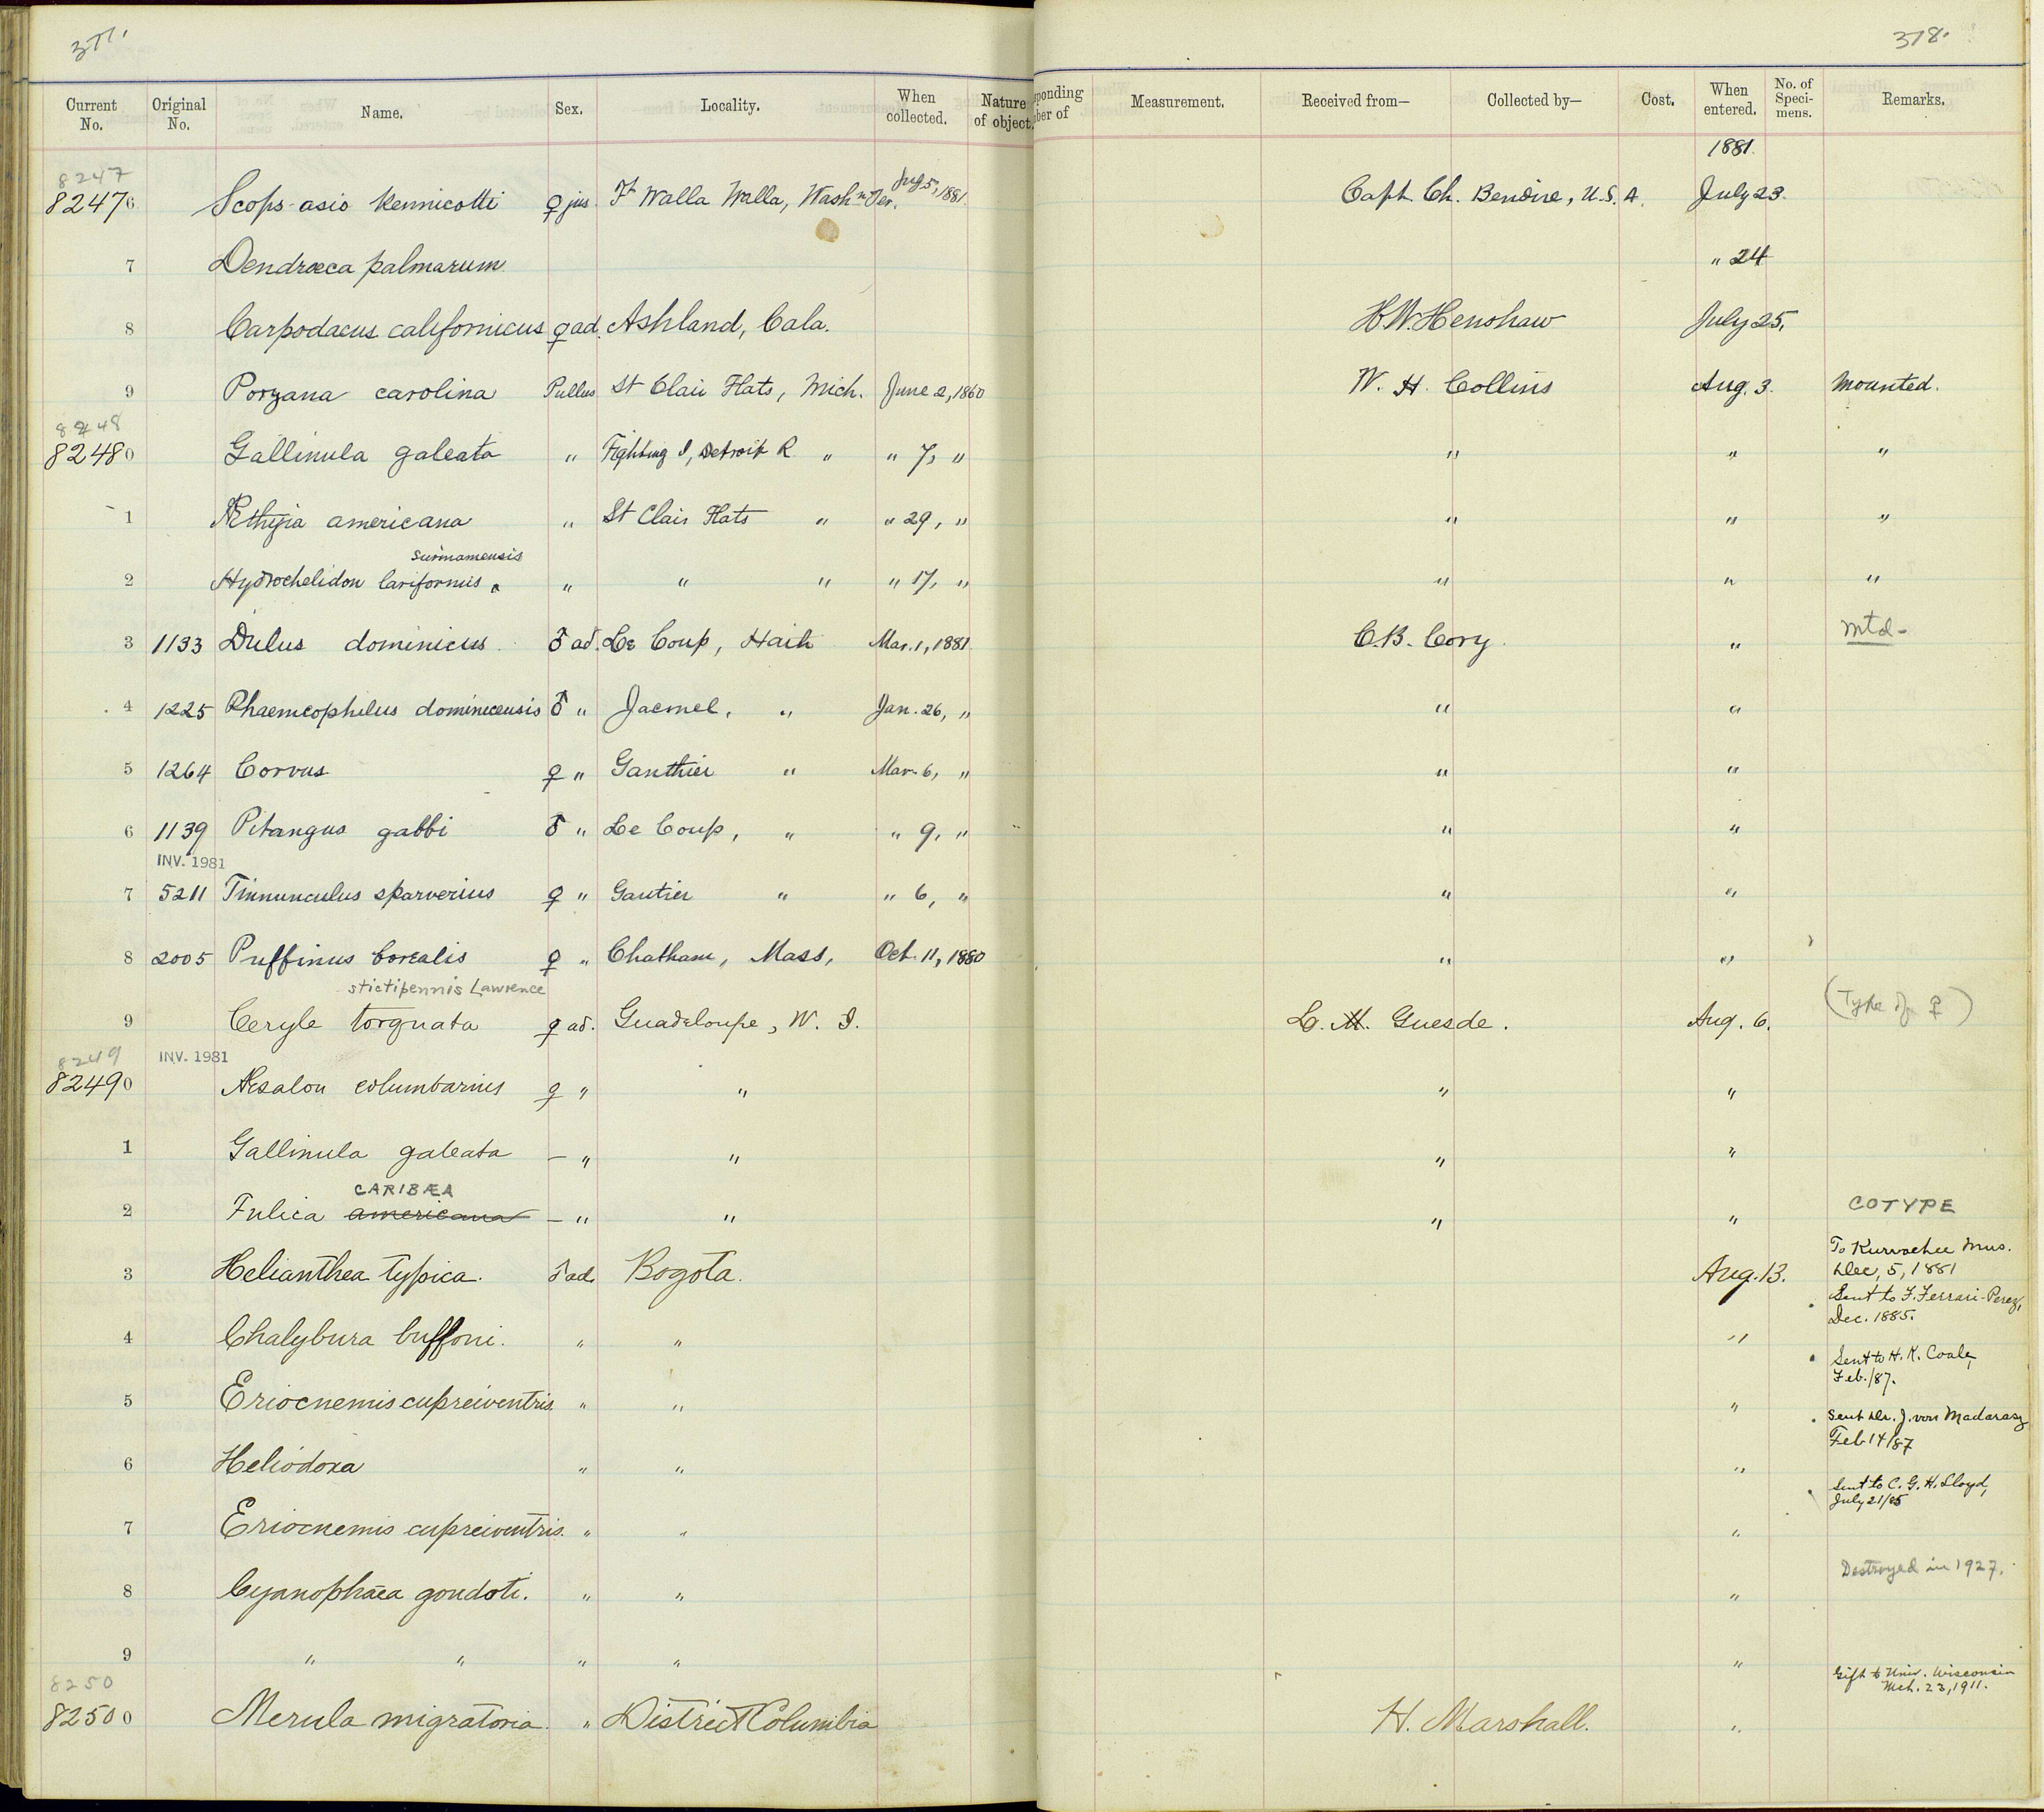 377.
378.
Current No. Original No. Name. Sex. Locality. When collected. Nature of object. Measurement. Received from— Collected by— Cost. When entered. No. of Speci-mens. Remarks.
1881.
8247
82476 Scops asio kennicotti ♀ juv. Ft Walla Walla, Washn Ter. 1881. Capt. Ch. Bendire, U.S.A. July 23.
7 Dendrœca palmarum " 24
8 Carpodacus californicus ♀ ad. Ashland, Cala. H.W. Henshaw July 25.
9 Porzana carolina Pullus St Clair Flats, Mich. June 2, 1860 W. H. Collins Aug. 3. Mounted.
8248
82480 Gallinula galeata " Fighting I, Detroit R. " " 7, " " " "
1 Æthyia americana " St Clair Flats " " 29, " " " "
surinamensis
2 Hydrochelidon lariformis ‸ " " " " 17, " " " "
3 1133 Dulus dominicus ♂ ad. Le Coup, Haiti Mar. 1, 1881. C.B. Cory. " Mtd-
4 1225 Phaenicophilus dominicensis ♂ " Jacmel, " Jan. 26, " " "
5 1264 Corvus ♀ " Ganthier " Mar. 6, " " "
6 1139 Pitangus gabbi ♂ " Le Coup, " " 9, " " "
INV. 1981
7 5211 Tinnunculus sparverius ♀ " Gautier " " 6, " " "
8 2005 Puffinus borealis ♀ " Chatham, Mass, Oct. 11, 1880 " "
stictipennis Lawrence
9 Ceryle torquata ♀ ad. Guadeloupe, W. I. L. M. Guesde. Aug. 6. (Type of ♀)
8249 INV. 1981
82490 Æsalon columbarius ♀ " " " "
1 Gallinula galeata — " " " "
CARIBÆA
2 Fulica americana — " " " " COTYPE
3 Helianthea typica. ♂ ad. Bogota. Aug. 13. To Kurrachee Mus.
Dec, 5, 1881
Sent to F. Ferrari-Perez,
Dec. 1885.
4 Chalybura buffoni. " " "
Sent to H. K. Coale,
Feb./87.
5 Eriocnemis cupreiventris. " " "
Sent Dr. J. von Madarasz
Feb 14/87
6 Heliodoxa " " "
Sent to C. G. H. Lloyd,
July 21/85
7 Eriocnemis cupreiventris. " " "
Destroyed in 1927.
8 Cyanophaea goudoti. " " "
9 " " " " "
8250
Gift to Univ. Wisconsin
Mch. 23, 1911.
82500 Merula migratoria. " District Columbia H. Marshall. "